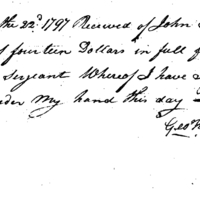 the 22d. 1797 Received of John
fourteen Dollars in full
sergeant Whereof I have
my hand this day
Geo